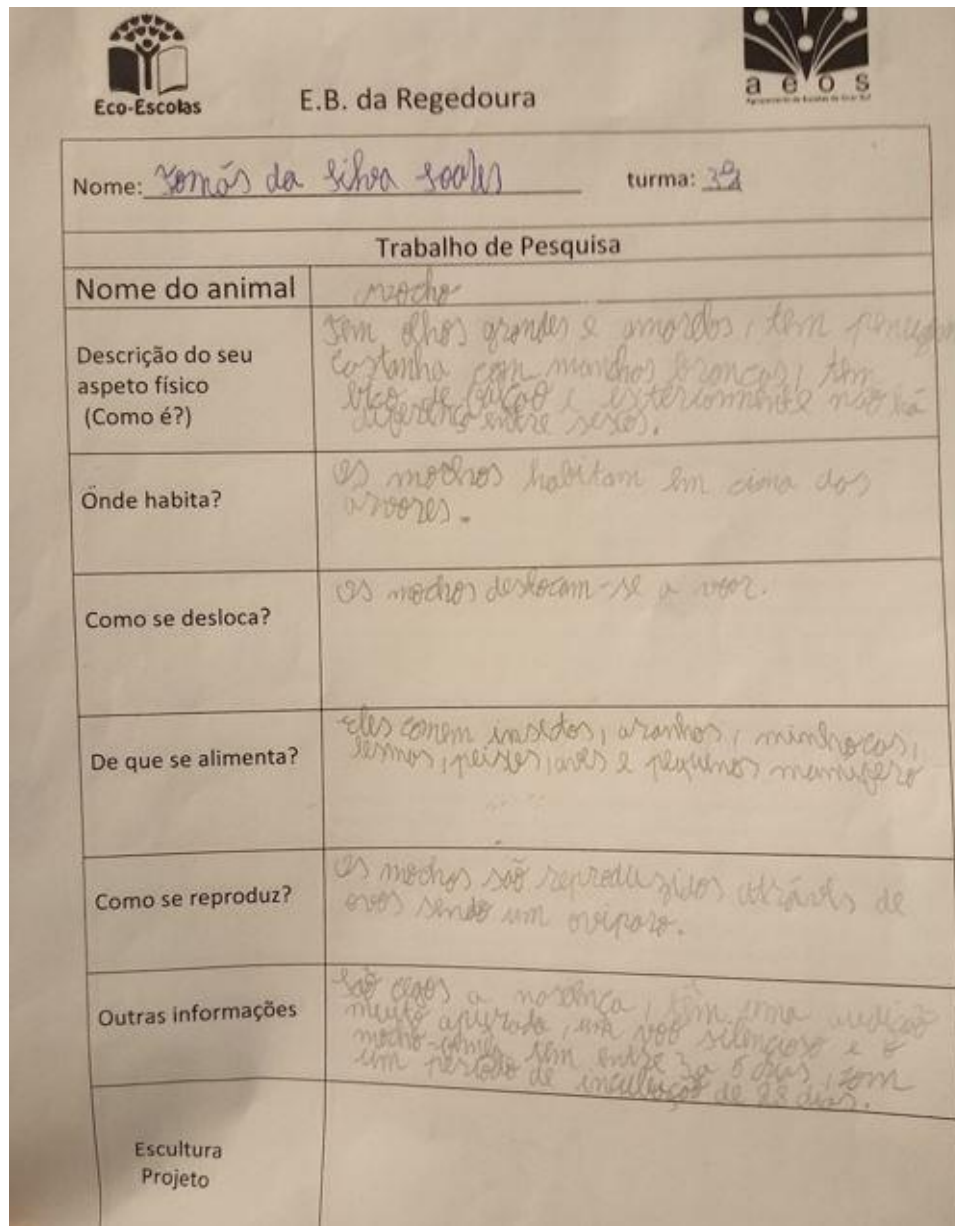 Eco-Escolas
E.B. da Regedoura
a e o s
Nome: Tomás da Silva Soares turma: 3º
Trabalho de Pesquisa
Nome do animal
mocho
Descrição do seu
aspeto físico
(Como é?)
Tem olhos grandes e amarelos, tem
castanha com manchas brancas, tem
bico de falcão e exteriormente não há
diferença entre sexos.
Onde habita?
Os mochos habitam em cima das
arvores.
Como se desloca?
Os mochos deslocam-se a voar.
De que se alimenta?
Eles comem insetos, aranhas, minhocas,
lesmas, peixes, aves e pequenos mamífero
Como se reproduz?
Os mochos são reproduzidos atrávés de
ovos sendo um oviparo.
Outras informações
São cegos a nascença, têm uma audição
muito apurada, um voo silencioso e o
mocho tem entre 3 a 5 com
um período de incubação de 28 dias.
Escultura
Projeto